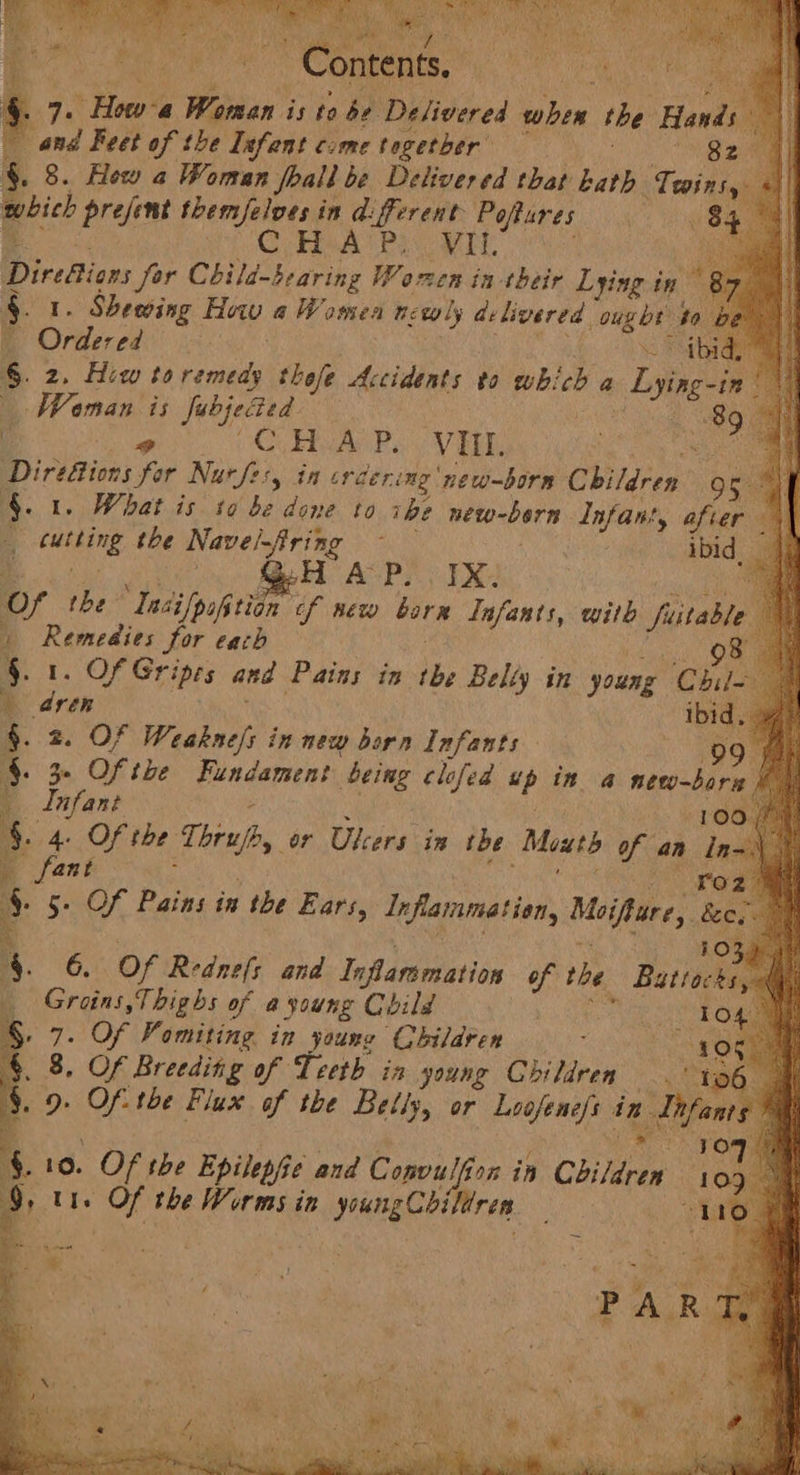 Contents.
§. 7. How a Woman is to be Delivered when the Hands
and Feet of the Infant come together 82
§. 8. How a Woman ſhall be Delivered that hath Twins,
which preſent themſelves in different Poſtures 84
CHAP. VII.
Directions for Child-bearing Women in their Lying in 87
§. 1. Shewing How a Women newly delivered ought to be
Ordered ibid.
§. 2. How to remedy thoſe Accidents to which a Lying-in
Woman is ſubjected 89
CHAP. VIII.
Directions for Nurſes, in ordering new-born Children 95
§. 1. What is to be done to the new-born Infant, after
cutting the Navel-ſtring ibid
CHAP. IX.
Of the Indiſpoſition of new born Infants, with ſuitable
Remedies for each 98
§. 1. Of Gripes and Pains in the Belly in young Chil-
dren ibid.
§. 2. Of Weakneſs in new born Infants 99
§. 3. Of the Fundament being cloſed up in a new-born
Infant 100
§. 4. Of the Thruſh, or Ulcers in the Mouth of an In-
fant 102
§. 5. Of Pains in the Ears, Inflammation, Moiſture, &c.
103
§. 6. Of Redneſs and Inflammation of the Buttocks,
Groins, Thighs of a young Child 104
§. 7. Of Vomiting in young Children 105
§. 8. Of Breeding of Teeth in young Children 106
§. 9. Of the Flux of the Belly, or Looſeneſs in Infants
107
§. 10. Of the Epilepſie and Convulſion in Children 109
§. 11. Of the Worms in young Children 110
PART.